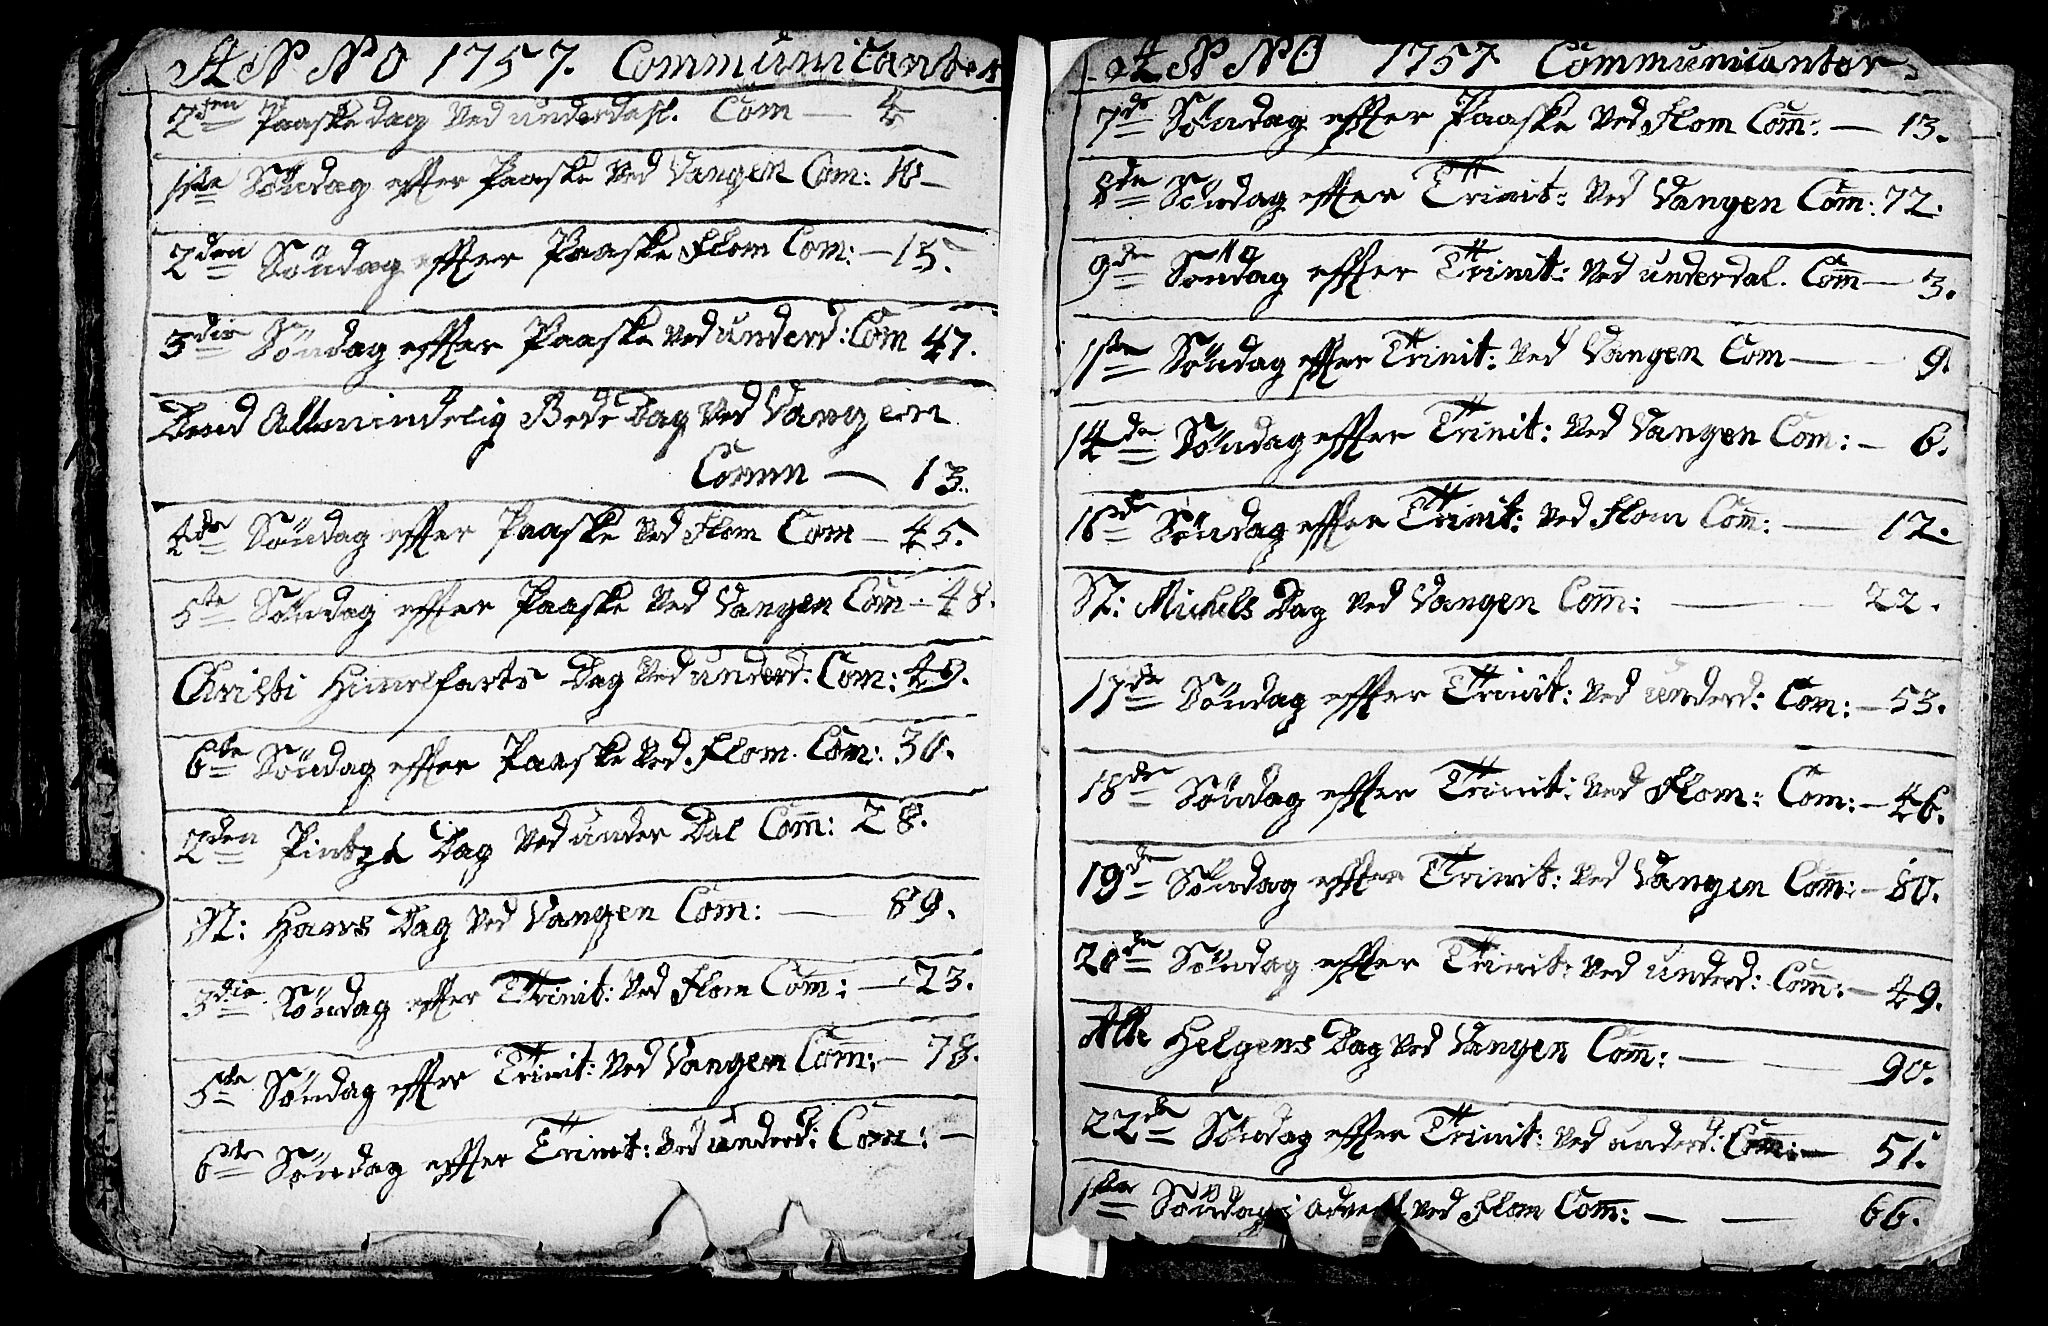 ANNO 1757. Communicanter
2den Paaske dag Ved underdahl. Com — 4
1ste Söndag effter Paaske Ved Vangen Com: 10 —
2den Söndag effter Paaske Flom Com: — 15.
3die Söndag effter Paaske Ved underd: Com 47.
Dend Allmindelig Bede Dag Ved Vangen
Comm — 13.
4de Söndag effter Paaske Ved Flom Com — 45.
5te Söndag effter Paaske Ved Vangen Com — 48.
Christi Himmelfarts Dag Ved underd: Com: 49.
6te Söndag effter Paaske Ved Flom. Com: 30.
2den Pintze Dag Ved under Dal Com̄: 28.
St: Hans Dag Ved Vangen Com: — 89.
3die Söndag effter Trinit: Ved Flom Com̄: — 23.
5te Söndag effter Trinit: Ved Vangen Com̄: — 78.
6te Söndag effter Trinit: Ved underd: Com: —
ANNO 1757 Communicanter
7de Söndag effter Paaske Ved Flom Com̄: — 13.
8de Söndag effter Trinit: Ved Vangen Com̄: 72.
9de Söndag effter Trinit: Ved underdal. Com̄ — 3.
11te Söndag effter Trinit: Ved Vangen Com — 9.
14de Söndag effter Trinit: Ved Vangen Com: — 6.
16de Söndag effter Trinit: Ved Flom Com̄: — 12.
St: Michels Dag Ved Vangen Com̄: — 22.
17de Söndag effter Trinit: Ved underd: Com: — 53.
18de Söndag effter Trinit: Ved Flom: Com: — 46.
19de Söndag effter Trinit: Ved Vangen Com̄: — 80.
20de Söndag effter Trinit: Ved underd: Com̄: — 49.
Alle Helgens Dag Ved Vangen Com̄: — 90.
22de Söndag effter Trinit: Ved underd: Com̄: — 51.
1ste Söndag i Advent Ved Flom Com̄: — — 66.